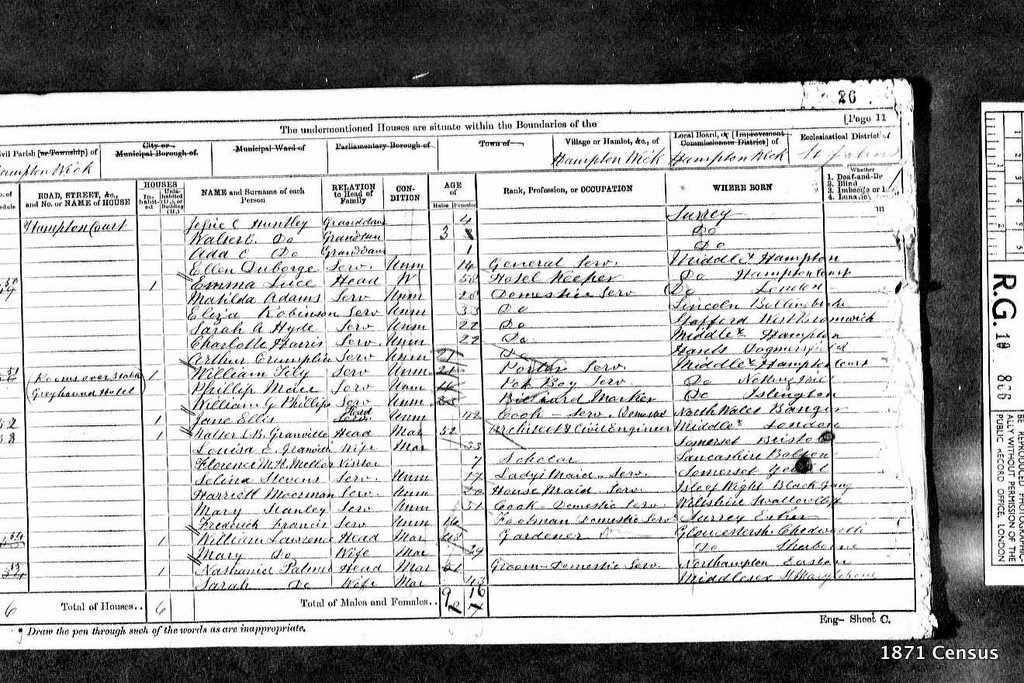 26
[Page 11
The undermentioned Houses are situate within the Boundaries of the
Civil Parish [or Township] of
City or Municipal Borough of
Municipal Ward of
Parliamentary Borough of
Town of
Village or Hamlet, &c., of
Local Board, or [Improvement Commissioners District] of
Ecclesiastical District of
Hampton Wick
Hampton Wick
Hampton Wick
St Johns
ROAD, STREET, &c., and No. or NAME of HOUSE
HOUSES
NAME and Surname of each Person
RELATION to Head of Family
CONDITION
AGE of
Males
Females
Rank, Profession, or OCCUPATION
WHERE BORN
Whether
1. Deaf-and-Dumb
2. Blind
3. Imbecile or
4. Lunatic
Hampton Court C Huntley Granddau 4 Surrey
Walter E Do Grandson 3 Do
Ada C Do Granddau 1 Do
Ellen Duborge Serv. Unm 14 General Serv. Middlx Hampton
1 Emma Luce Head W 58 Hotel Keeper Do Hampton Court
Matilda Adams Serv Unm 28 Domestic Serv Do London
Eliza Robinson Serv Unm 33 Do Lincoln
Sarah A Hyde Serv Unm 22 Do Stafford West Bromwich
Charlotte Harris Serv. Unm 22 Do Middlx Hampton
Arthur Serv Unm 21 Do Hants
Rooms over Stable 1 William Serv Unm Porter Serv Middlx Hampton Court
Greyhound Hotel Phillip Serv Unm Pot Boy Serv Do
William G Phillips Serv Unm Billiard Marker Do Islington
1 Jane Ellis Head Unm 42 Cook - Serv Domestic North Wales Bangor
1 Walter B. Granville Head Mar 52 Architect & Civil Engineer Middlx London
Louisa E. Granville Wife Mar 53 Somerset Bristol
Florence M. Visitor 7 Scholar Lancashire Bolton
Selina Stevens Serv. Unm 17 Ladys Maid Serv. Somerset Yeovil
Harriott Moorman Serv. Unm 20 House Maid Serv. Isle of Wight Black Gang
Mary Stanley Serv Unm 51 Cook Domestic Serv. Wiltshire
Frederick Francis Serv Unm 16 Footman Domestic Serv Surrey Esher
1 William Lawrence Head Mar 43 Gardener Gloucestersh
Mary Do Wife Mar 29 Do Sherborne
1 Nathaniel Palmer Head Mar 41 Groom Domestic Serv. Northampton
Sarah Do Wife Mar 43 Middlesex Marylebone
6 Total of Houses.. 6 Total of Males and Females.. 9 16
* Draw the pen through such of the words as are inappropriate.
Eng- Sheet C.
R.G. 10
866
BE REPRODUCED PHOTOGRAPHIC-
ALLY WITHOUT PERMISSION OF THE
PUBLIC RECORD OFFICE, LONDON
1871 Census